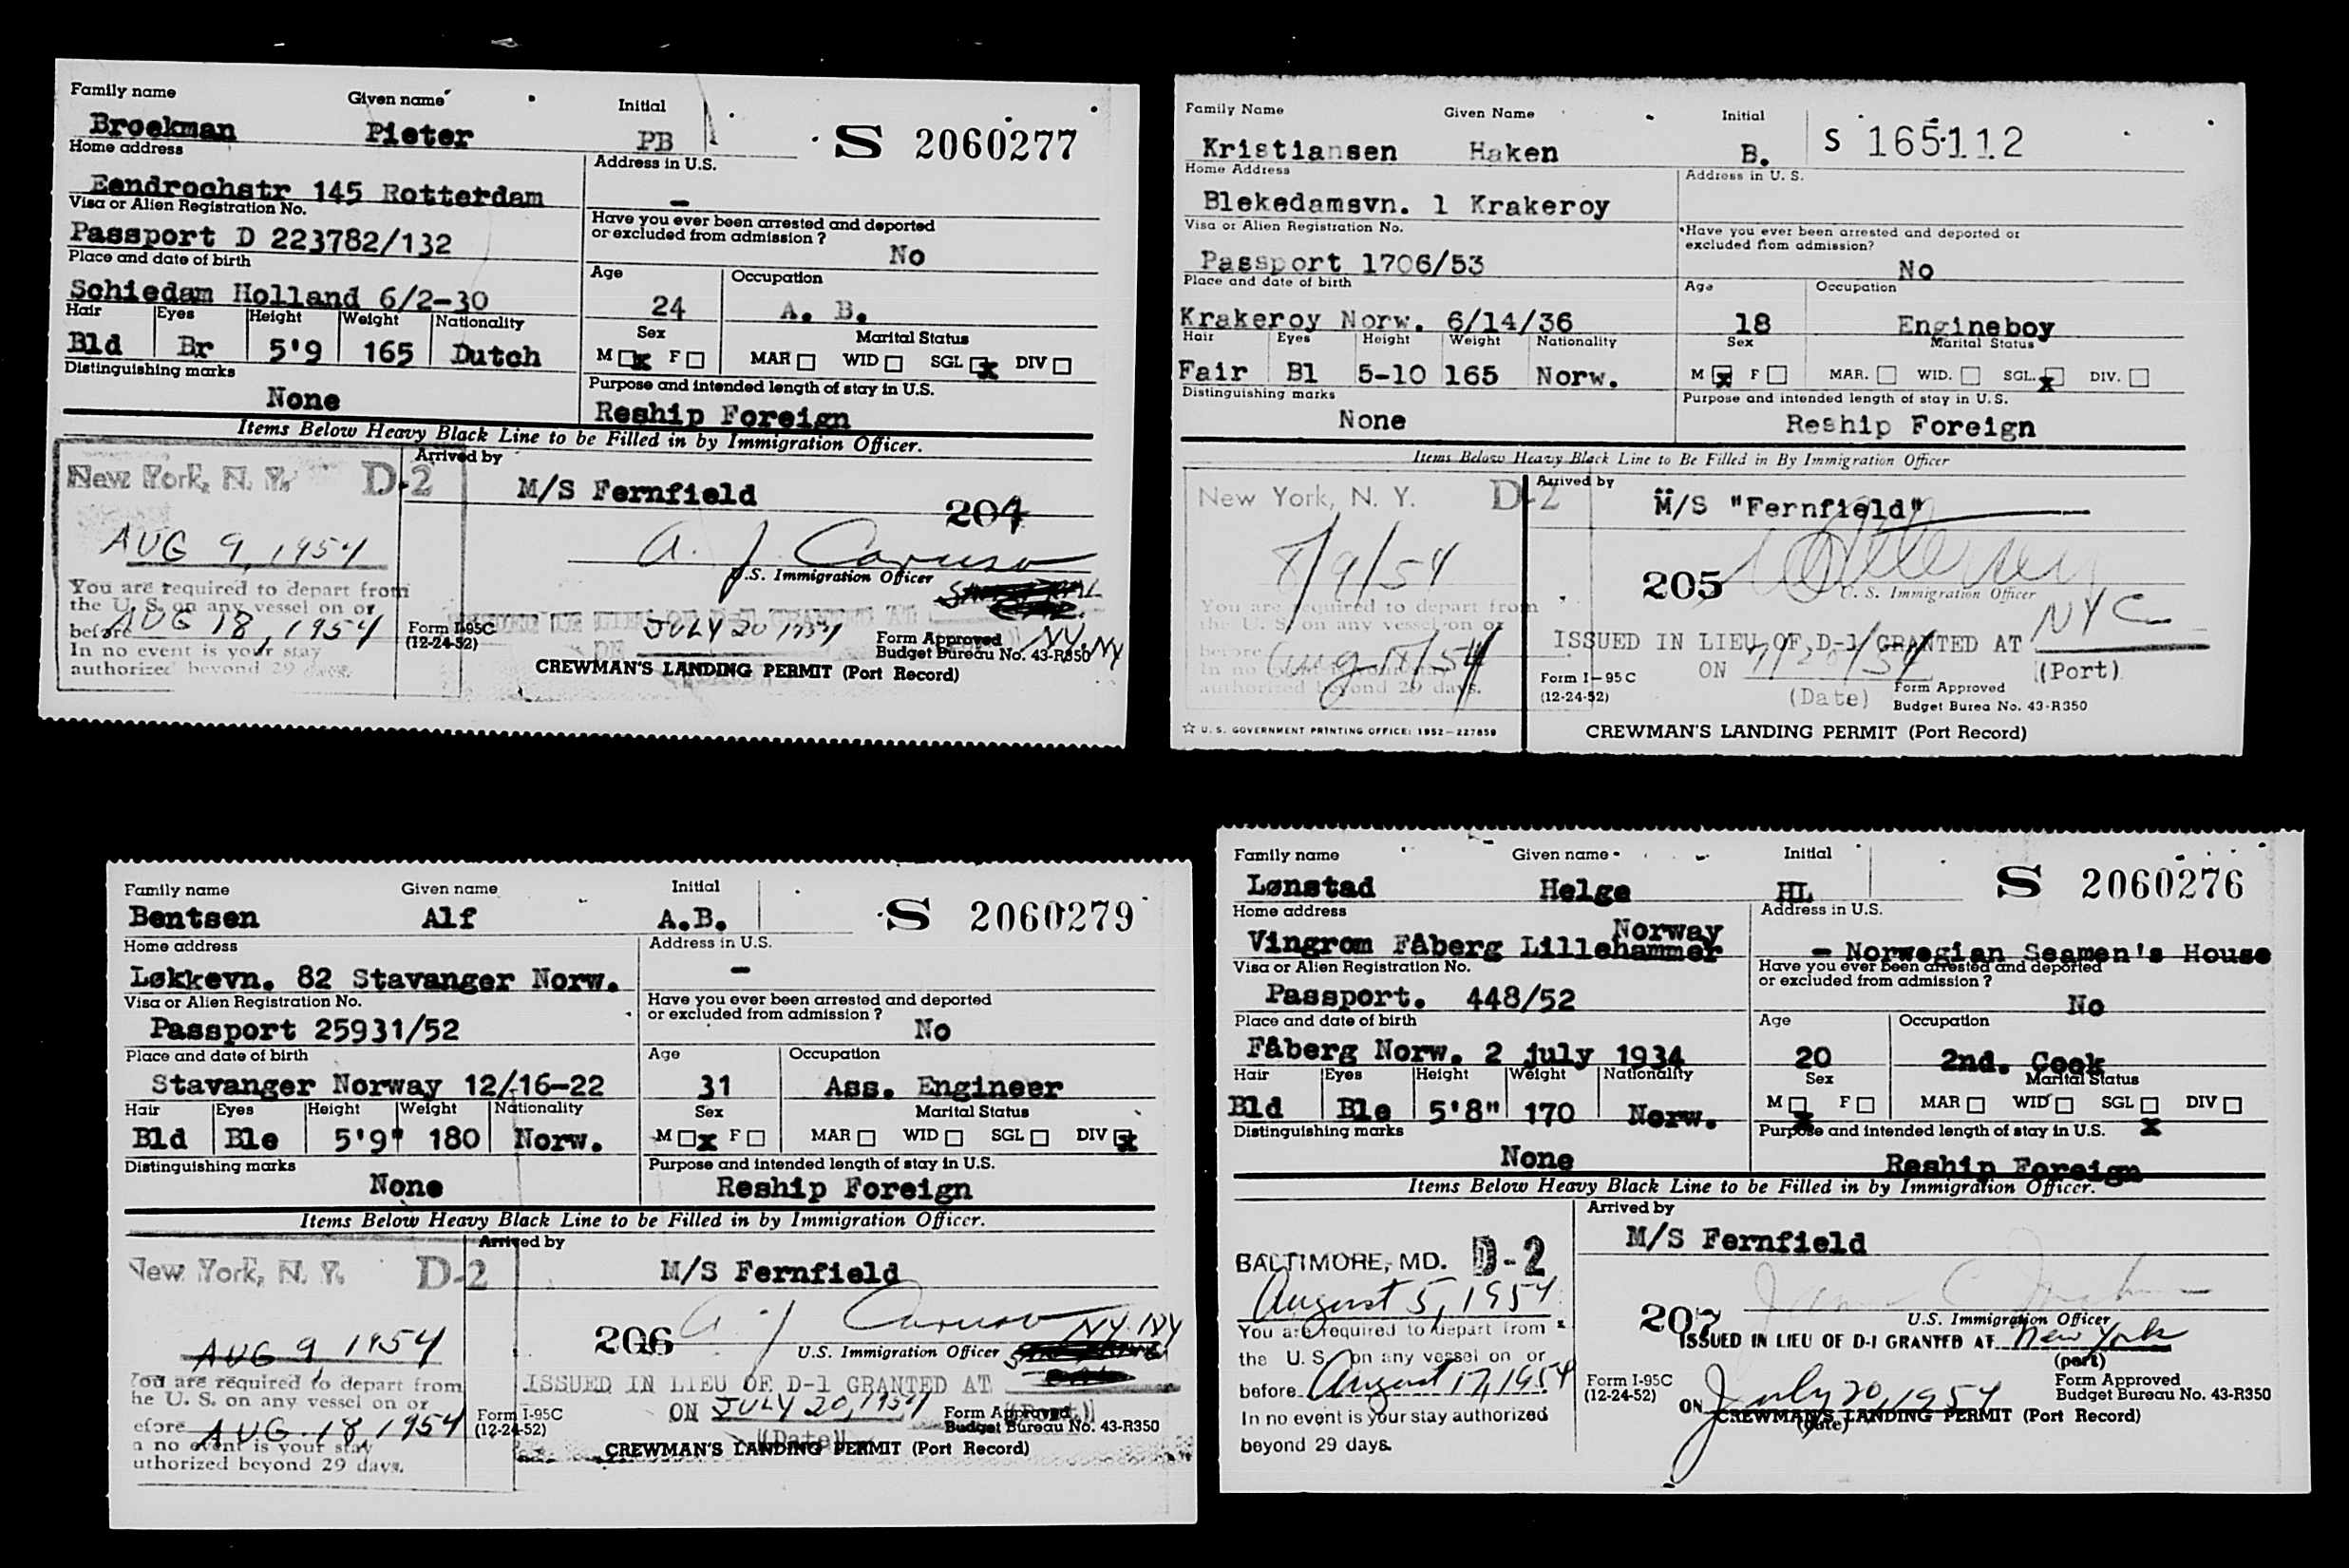 Family name Given name Initial
Broekman Pieter PB S 2060277
Home address Address in U.S.
Eendrochstr 145 Rotterdam -
Visa or Alien Registration No. Have you ever been arrested and deported
or excluded from admission?
Passport D 223782/132 No
Place and date of birth Age Occupation
Schiedam Holland 6/2-30 24 A. B.
Hair Eyes Height Weight Nationality Sex Marital Status
Bld Br 5'9 165 Dutch M x F MAR WID SGL x DIV
Distinguishing marks Purpose and intended length of stay in U.S.
None Reship Foreign
Items Below Heavy Black Line to be Filled in by Immigration Officer.
New York, N. Y. D-2 Arrived by
M/S Fernfield
204
AUG 9, 1954 A. J. Caruso
U.S. Immigration Officer
You are required to depart from
the U. S. on any vessel on or
before AUG 18, 1954
In no event is your stay
authorized beyond 29 days.
ISSUED IN LIEU OF D-1 GRANTED AT NY. NY
ON JULY 20 1954
Form I-95C
(12-24-52)
Form Approved
Budget Bureau No. 43-R350
CREWMAN'S LANDING PERMIT (Port Record)
Family Name Given Name Initial
Kristiansen Haken B. S 165112
Home Address Address in U. S.
Blekedamsvn. 1 Krakeroy
Visa or Alien Registration No. Have you ever been arrested and deported or
excluded from admission?
Passport 1706/53 No
Place and date of birth Age Occupation
Krakeroy Norw. 6/14/36 18 Engineboy
Hair Eyes Height Weight Nationality Sex Marital Status
Fair Bl 5-10 165 Norw. M x F MAR. WID. SGL. x DIV.
Distinguishing marks Purpose and intended length of stay in U. S.
None Reship Foreign
Items Below Heavy Black Line to Be Filled in By Immigration Officer
New York, N. Y. D-2 Arrived by
M/S "Fernfield"
8/9/54
205
U. S. Immigration Officer
You are required to depart from
the U. S. on any vessel on or
before Aug 18/54
In no event is your stay
authorized beyond 29 days.
ISSUED IN LIEU OF D-1 GRANTED AT NYC
ON 7/20/54 (Port)
(Date)
Form I-95C
(12-24-52)
Form Approved
Budget Burea No. 43-R350
☆ U. S. GOVERNMENT PRINTING OFFICE: 1952-227859
CREWMAN'S LANDING PERMIT (Port Record)
Family name Given name Initial
Bentsen Alf A.B. S 2060279
Home address Address in U.S.
Løkkevn. 82 Stavanger Norw. -
Visa or Alien Registration No. Have you ever been arrested and deported
or excluded from admission?
Passport 25931/52 No
Place and date of birth Age Occupation
Stavanger Norway 12/-16-22 31 Ass. Engineer
Hair Eyes Height Weight Nationality Sex Marital Status
Bld Ble 5'9" 180 Norw. M x F MAR WID SGL DIV x
Distinguishing marks Purpose and intended length of stay in U.S.
None Reship Foreign
Items Below Heavy Black Line to be Filled in by Immigration Officer.
New York, N. Y. D-2 Arrived by
M/S Fernfield
AUG 9, 1954 206 A. J. Caruso
U.S. Immigration Officer NY. NY
You are required to depart from
he U. S. on any vessel on or
efore AUG. 18, 1954
n no event is your stay
uthorized beyond 29 days.
ISSUED IN LIEU OF D-1 GRANTED AT
ON JULY 20, 1954 (Port)
(Date)
Form I-95C
(12-24-52)
Form Approved
Budget Bureau No. 43-R350
CREWMAN'S LANDING PERMIT (Port Record)
Family name Given name Initial
Lønstad Helge HL S 2060276
Home address Address in U.S.
Norway
Vingrom Fåberg Lillehammer - Norwegian Seamen's House
Visa or Alien Registration No. Have you ever been arrested and deported
or excluded from admission?
Passport. 448/52 No
Place and date of birth Age Occupation
Fåberg Norw. 2 july 1934 20 2nd. Cook
Hair Eyes Height Weight Nationality Sex Marital Status
Bld Ble 5'8" 170 Norw. M x F MAR WID SGL x DIV
Distinguishing marks Purpose and intended length of stay in U.S.
None Reship Foreign
Items Below Heavy Black Line to be Filled in by Immigration Officer.
Arrived by
M/S Fernfield
BALTIMORE, MD. D-2
August 5, 1954
207
U.S. Immigration Officer
You are required to depart from
the U. S. on any vessel on or
before August 17, 1954
In no event is your stay authorized
beyond 29 days.
ISSUED IN LIEU OF D-1 GRANTED AT New York
(port)
ON July 20, 1954
(date)
Form I-95C
(12-24-52)
Form Approved
Budget Bureau No. 43-R350
CREWMAN'S LANDING PERMIT (Port Record)